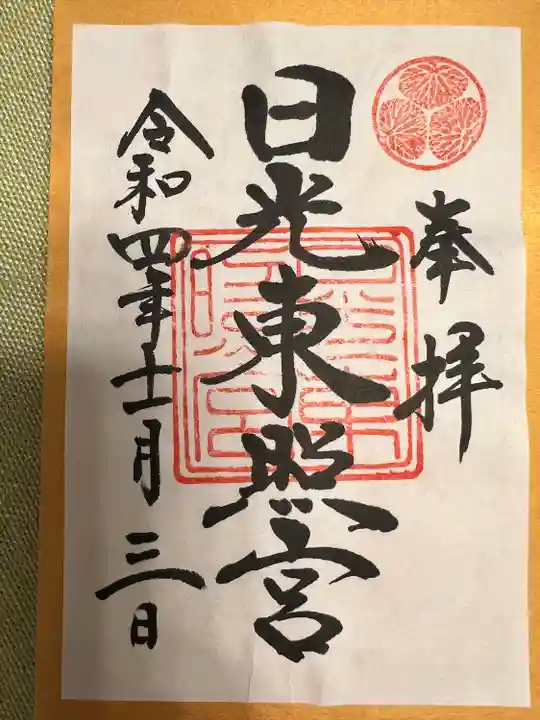 奉拝
日光東照宮
令和四年十二月三日